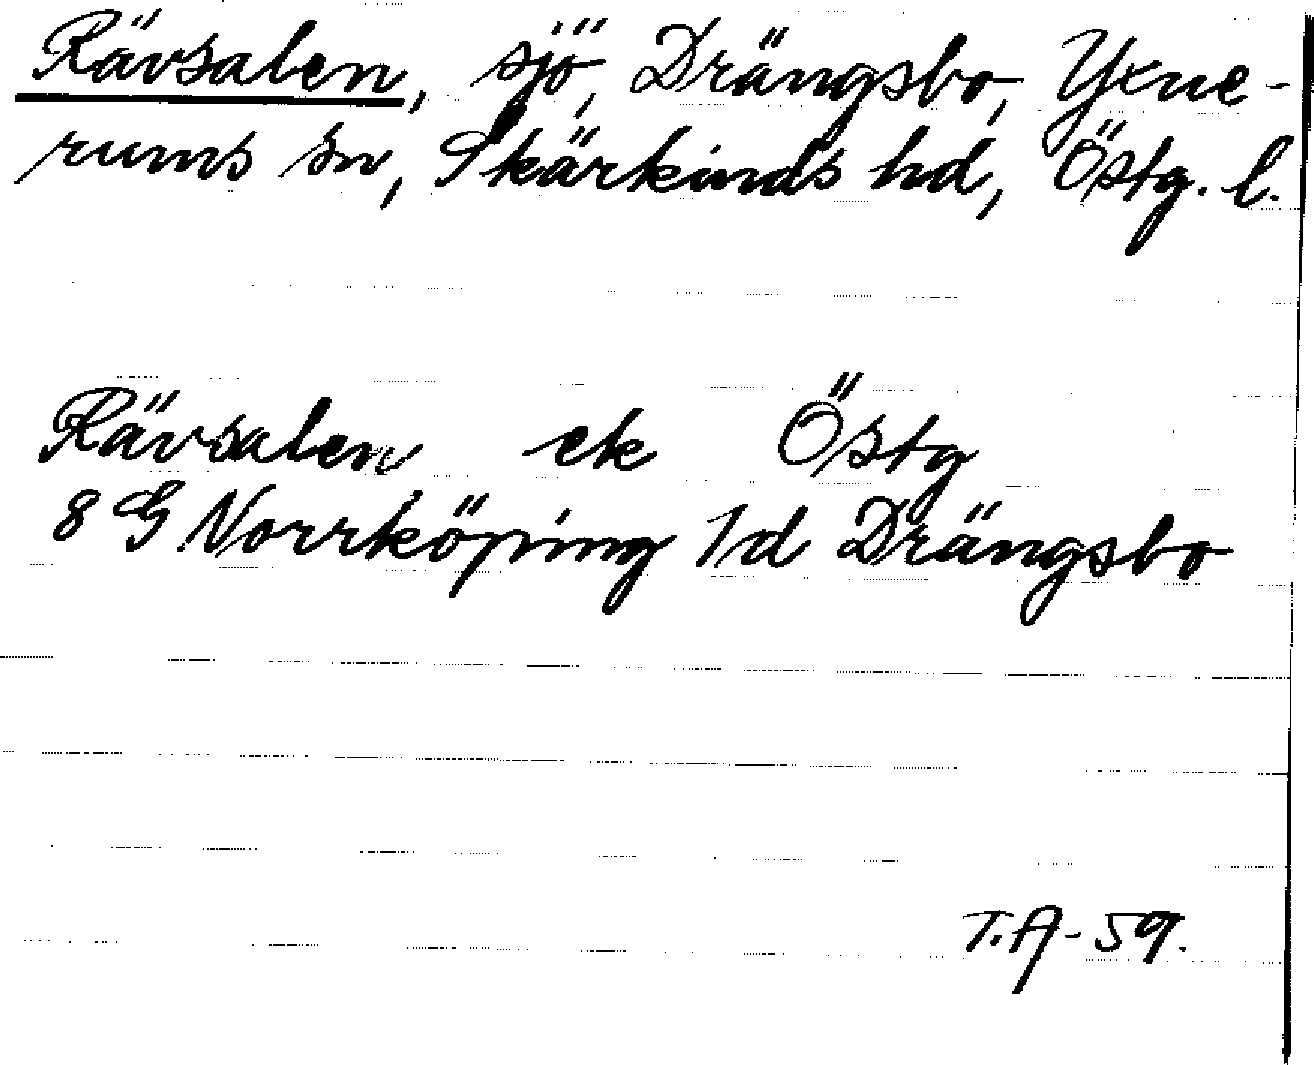 Rävsalen, sjö, Drängsbo, Yxne-
rums sn, Skärkinds hd, Östg. l.
Rävsalen ek Östg
8 G Norrköping 1d Drängsbo
T.A-59.